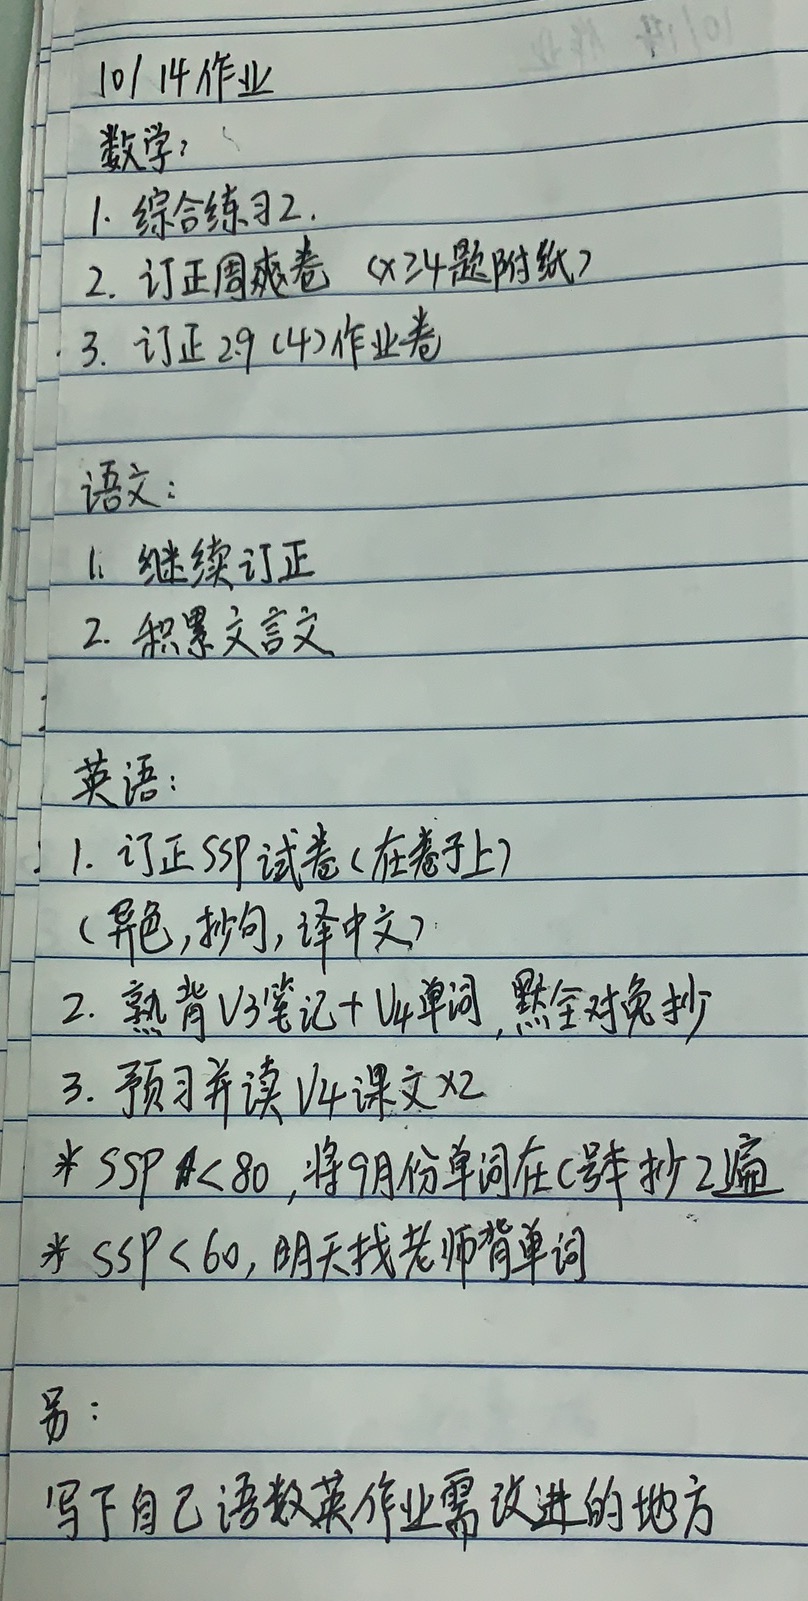 10/14作业
数学:
1. 综合练习2.
2. 订正周爽卷 (×≥4题附纸)
3. 订正29(4)作业卷
语文:
1. 继续订正
2. 积累文言文
英语:
1. 订正SSP试卷(在卷子上)
(异色,抄句,译中文)
2. 熟背U3笔记+U4单词,默全对免抄
3. 预习并读U4课文×2
* SSP<80,将9月份单词在C号本抄2遍
* SSP<60,明天找老师背单词
另:
写下自己语数英作业需改进的地方